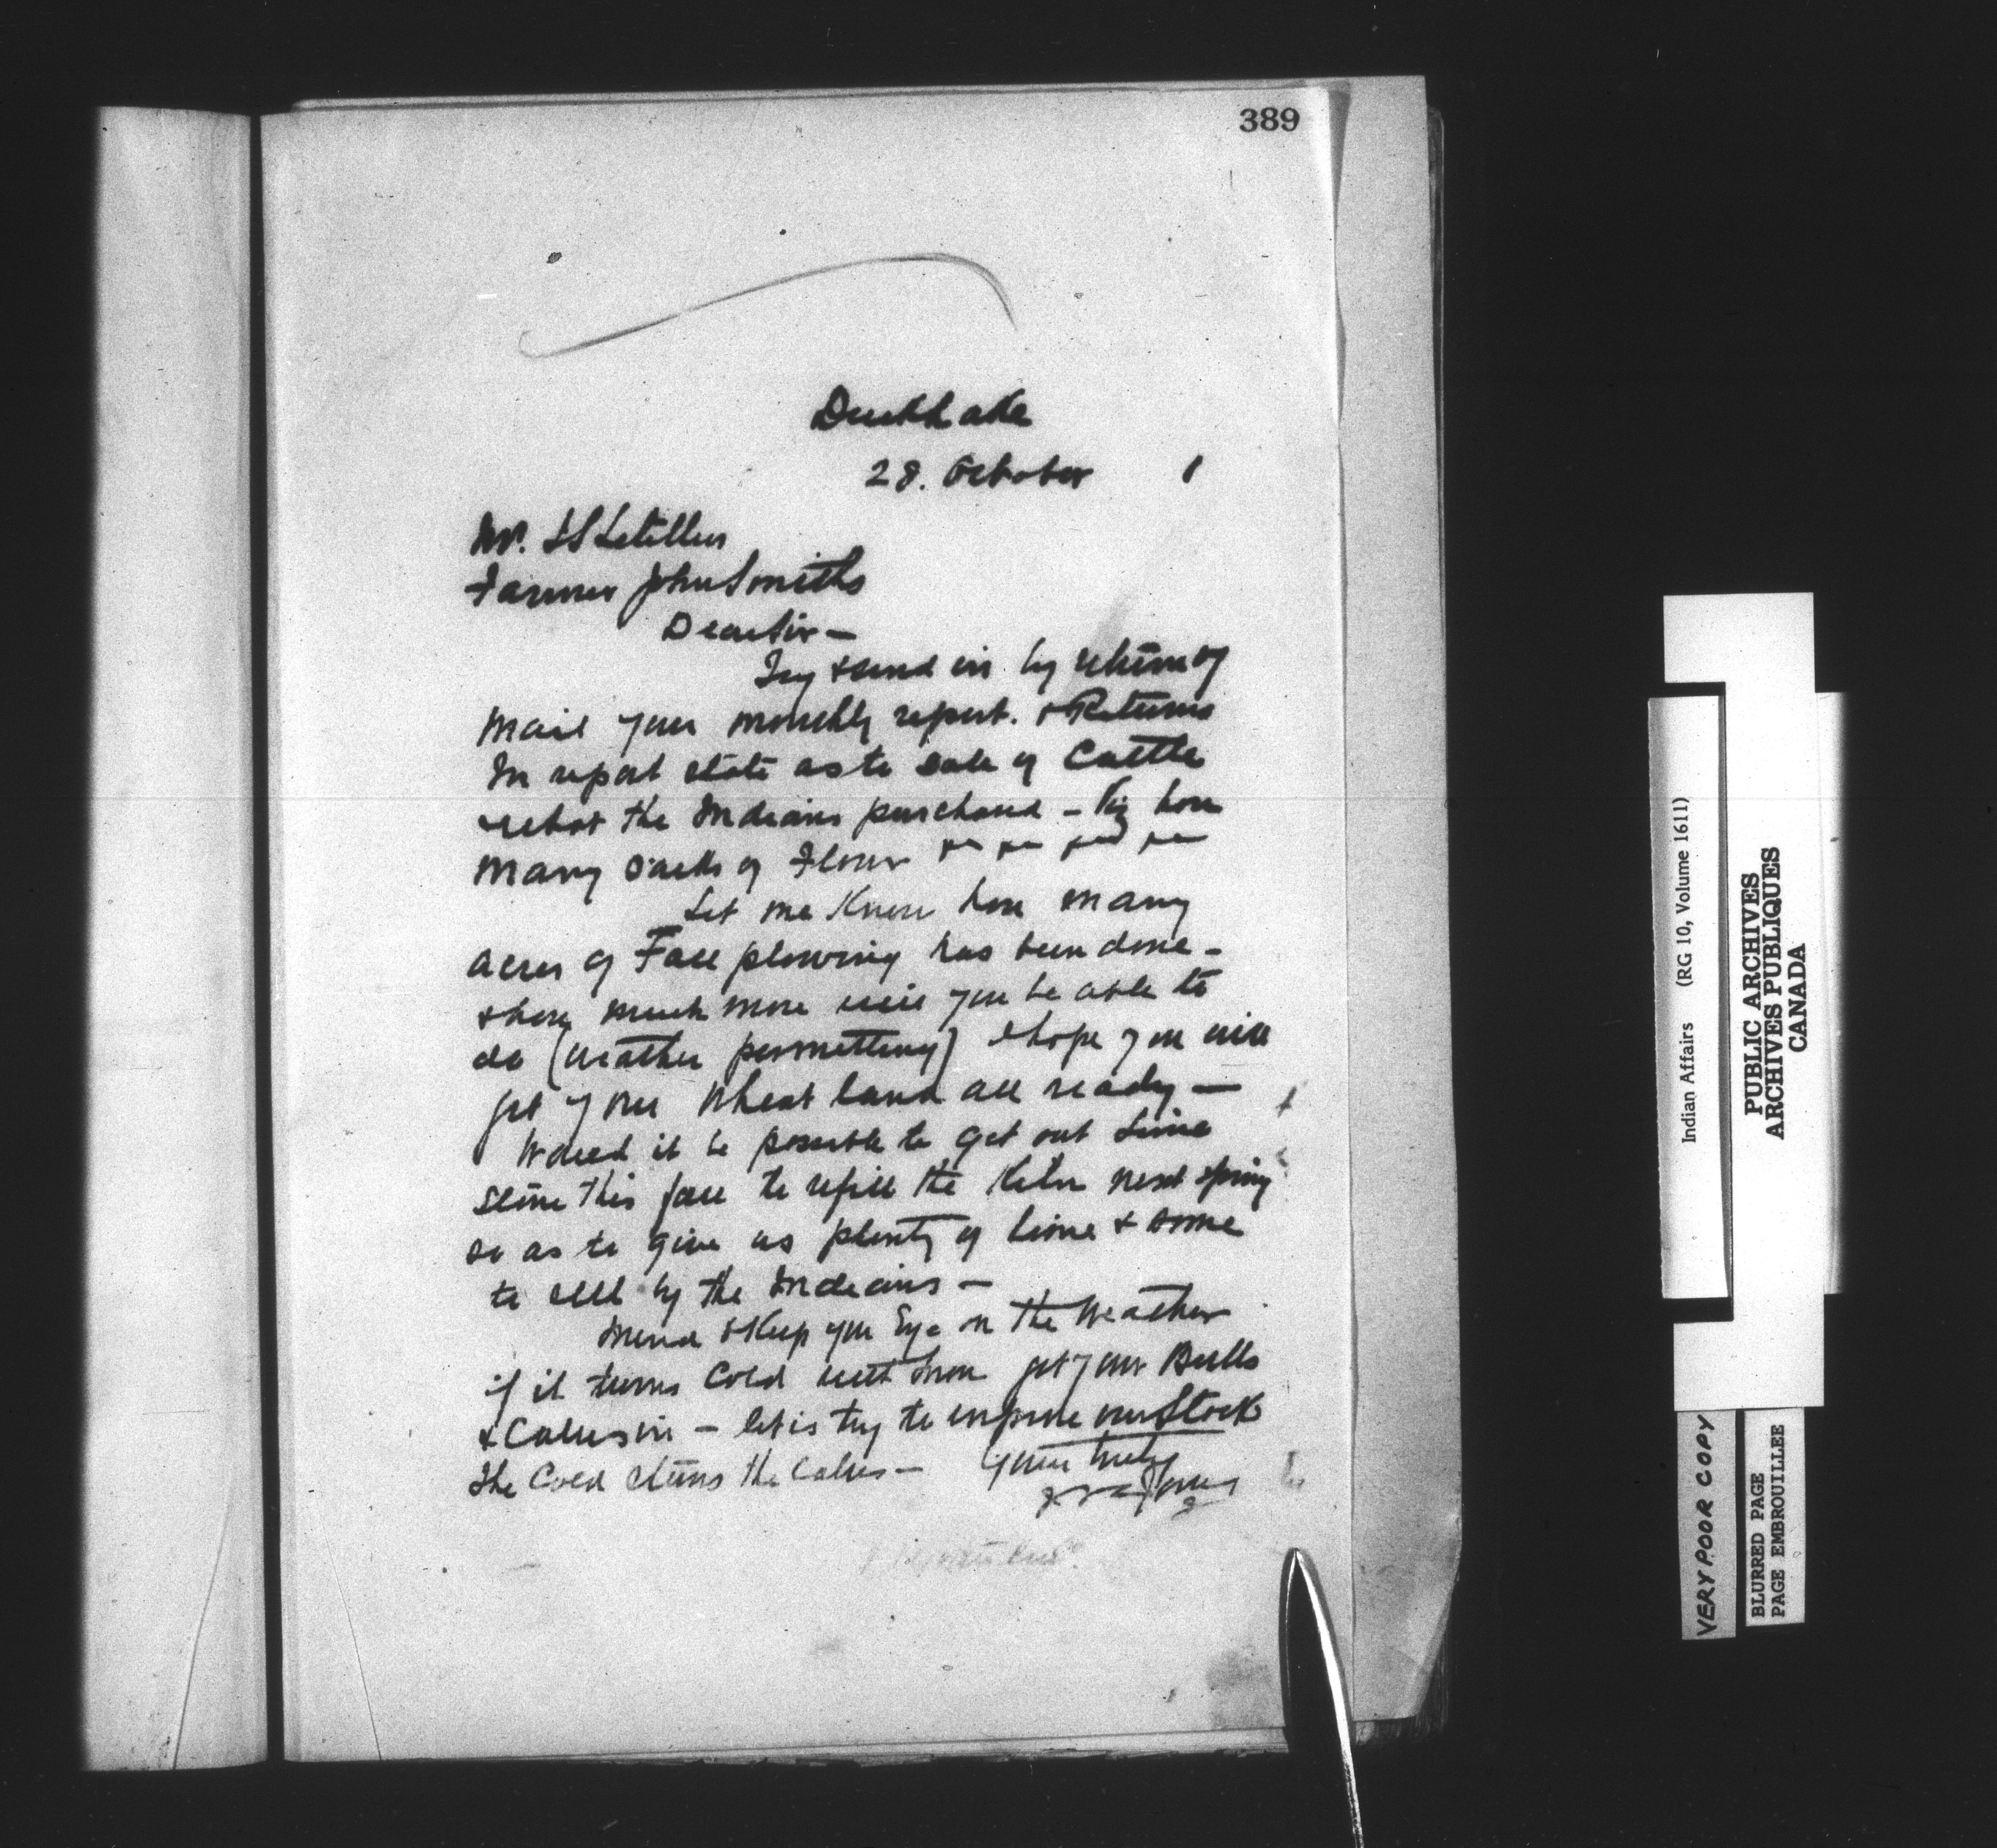 389
Duck Lake
28. October 1
Mr. Letellier
Farmer John Smiths
Dear Sir —
Try & send in by return of
mail your monthly report. & Returns
In report state as to sale of Cattle
what the Indians purchased - how
many sacks of Flour
Let me Know how many
acres of Fall plowing has been done -
& how much more will you be able to
do (weather permitting) I hope you will
get your Wheat land all ready —
Would it be possible to get out Lime
stone this fall to refill the Kiln next spring
so as to give us plenty of lime & some
to sell by the Indians —
Mind & Keep your Eye on the Weather
if it turns Cold with snow get your Bulls
& Calves in — let us try to improve our Stock
The Cold stunts the Calves — Yours truly
Indian Affairs (RG 10, Volume 1611)
PUBLIC ARCHIVES
ARCHIVES PUBLIQUES
CANADA
VERY POOR COPY
BLURRED PAGE
PAGE EMBROUILLEE